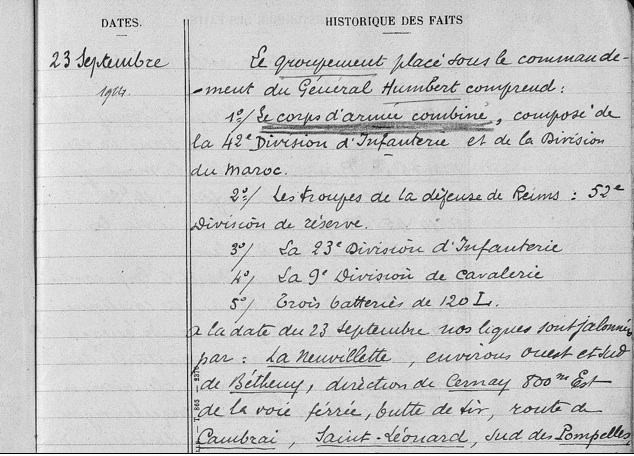 DATES.
HISTORIQUE DES FAITS
23 Septembre
1914.
Le groupement placé sous le commande-
-ment du Général Humbert comprend :
1º/ Le corps d'armée combiné, composé de
la 42e Division d'Infanterie et de la Division
du Maroc.
2º/ Les troupes de la défense de Reims : 52e
Division de réserve.
3º/ La 23e Division d'Infanterie
4º/ La 9e Division de cavalerie
5º/ Trois batteries de 120 L.
A la date du 23 Septembre nos lignes sont jalonnées
par : La Neuvillette, environs ouest et sud
de Bétheny, direction de Cernay 800m Est
de la voie ferrée, butte de tir, route de
Cambrai, Saint-Léonard, Sud des Pompelles,